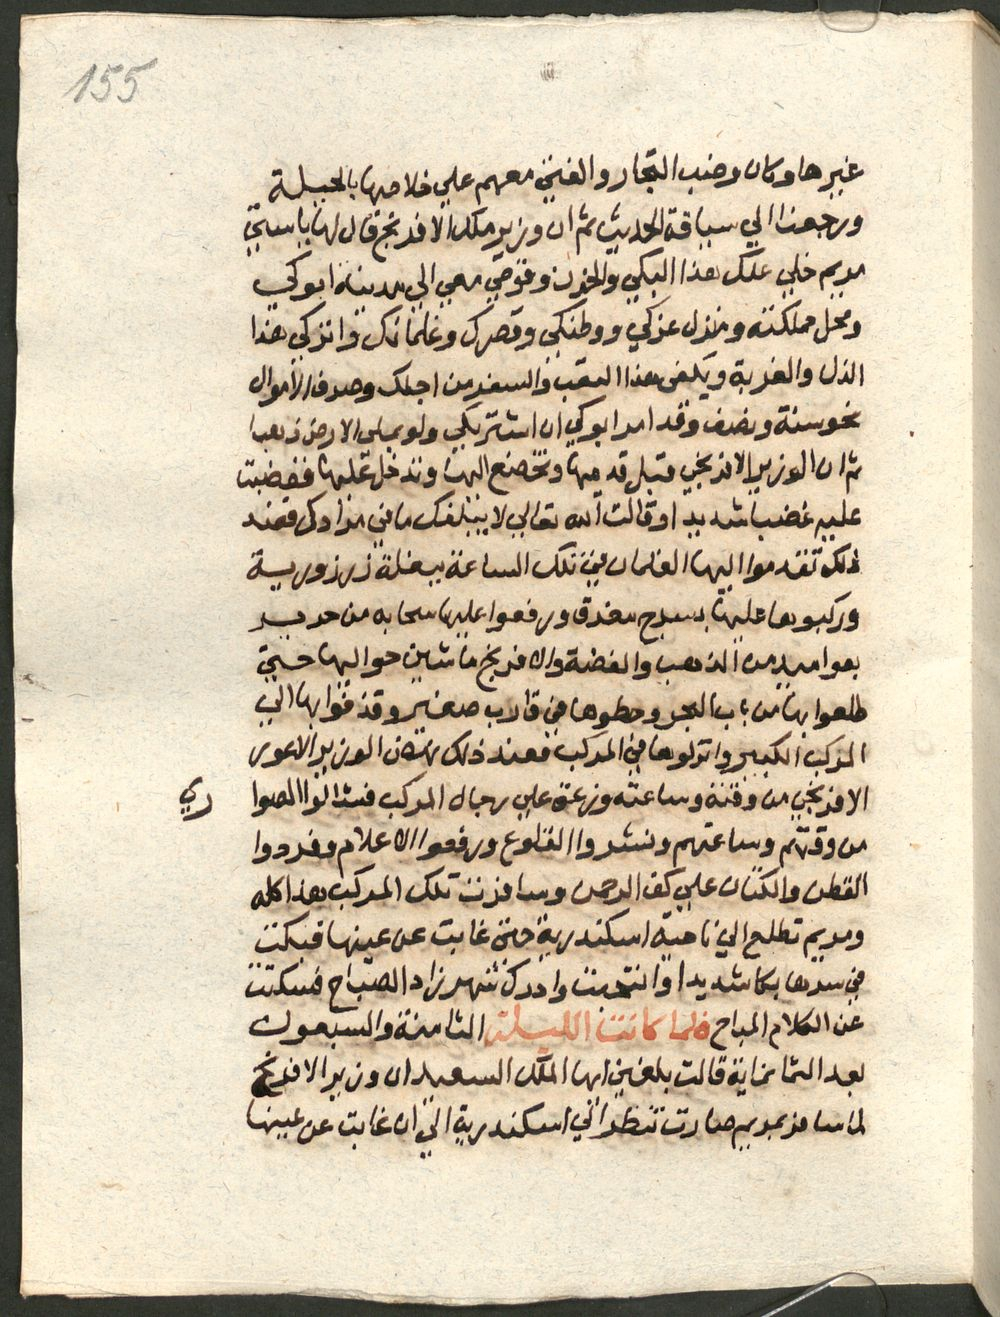 155
غيرها وكان وضب التجار والفتي معهم علي خلاصها بالحيلة
ورجعنا الي سياقة الحديث ثم ان وزير ملك الافرنج قال لها يا ستي
مريم خلي عنك هذا البكي والحزن وقومي معي الي مدينة ابوكي
ومحل مملكته ومنزل عزكي ووطنكي وقصرك وغلمانك واتركي هذا
الذل والغربة ويكفي هذا التعب والسفر من اجلك وصرف الاموال
نحو سنة ونصف وقد امر ابوكي ان اشتريكي ولو بملي الارض ذهبا
ثم ان الوزير الافرنجي قبل قدميها وتخضع اليها وتدخل عليها فغضبت
عليه غضبا شديدا وقالت الله تعالي لا يبلغك ما في مرادك فعند
ذلك تقدموا اليها الغلمان في تلك الساعة ببغلة زرزورية
وركبوها عليها بسرج مغرق ورفعوا عليها سحابه من حرير
بعواميد من الذهب والفضة والافرنج ماشين حواليها حتي
طلعوا بها من باب البحر وحطوها في قارب صغير وقذفوا بها الي
المركب الكبير وانزلوها في المركب فعند ذلك نهض الوزير الاعور
الافرنجي من وقته وساعته وزعق علي رجال المركب فشالوا الصوا
ري
من وقتهم وساعتهم ونشروا القلوع ورفعوا الاعلام وفردوا
القطن والكتان علي كف الرحمن وسافرت تلك المركب هذا كله
ومريم تطلع الي ناحية اسكندرية حتي غابت عن عينها فبكت
في سرها بكا شديدا وانتحبت وادرك شهرزاد الصباح فسكتت
عن الكلام المباح فلما كانت الليلة الثامنة والسبعون
بعد الثمانماية قالت بلغني ايها الملك السعيد ان وزير الافرنج
لما سافر بمريم صارت تنظر الي اسكندرية الي ان غابت عن عينها